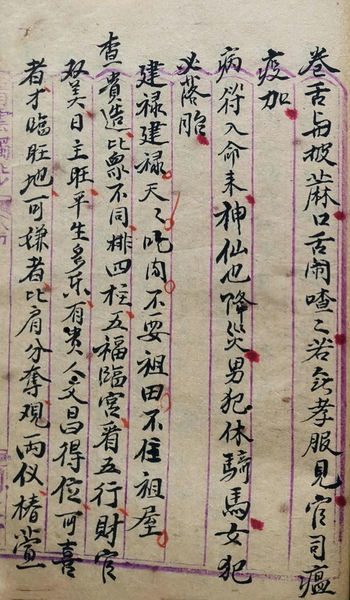 卷舌与披麻口舌闹喳々若无孝服见官司瘟
疫加
病符入命来神仙也降災男犯休騎馬女犯
必落胎
建禄建禄天々吃肉不要祖田不住祖屋
查貴造比象不同排四柱五福臨宮看五行財官
双美日主旺平生多乐有贵人文昌得位可喜
者才臨旺地可嫌者比肩分奪观両仪椿萱